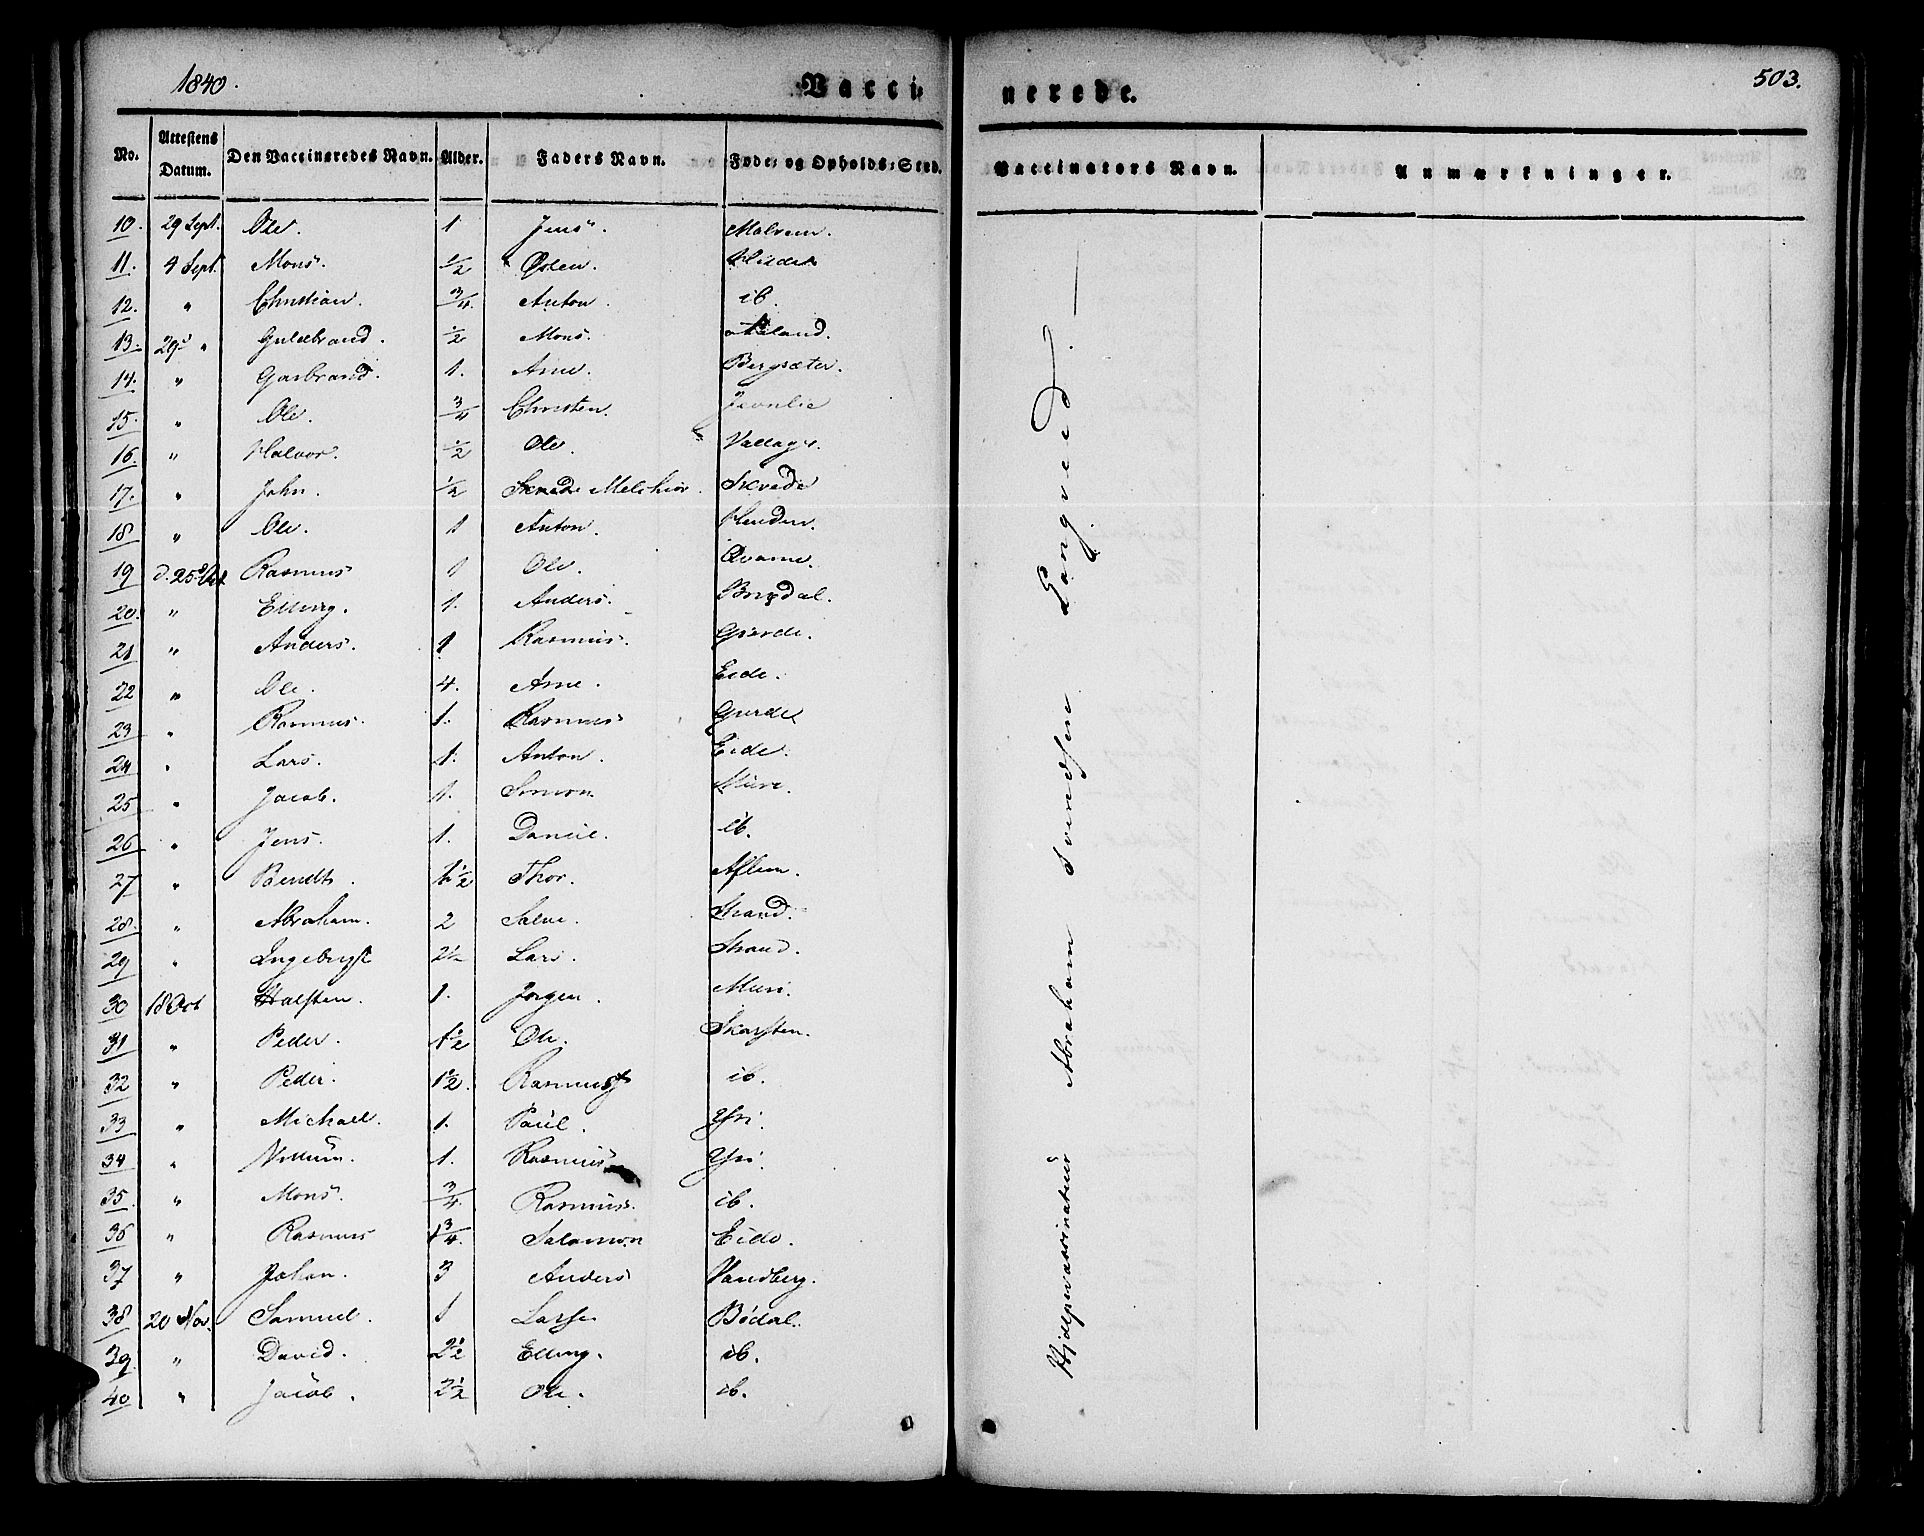 1840.
Vaccinerede.
503.
No. Attestens Datum. Den Vaccineredes Navn. Alder. Faders Navn. Føde- og Opholds-Sted. Vaccinators Navn. Anmærkninger.
10. 29 Sept. Ole. 1 Jens.
11. 4 Sept. Mons. 1/2 Østen.
12. " Christian. 3/4. Anton. ib.
13. 29 " Guldbrand. 1/2 Mons. Aaland.
14. " Garbrand. 1. Arne. Bergsæter.
15. " Ole. 3/4 Christen.
16. " Halvor. 1/2 Ole.
17. " John. 1/2 Skrede Melchior. Skrede
18 " Ole. 1 Anton.
19 d. 25 Oct Rasmus 1 Ole. Qvame.
20. " Elling. 1. Anders. Bredal.
21 " Anders. 1 Rasmus. Gierde.
22 " Ole. 4. Arne. Eide.
23 " Rasmus. 1. Rasmus Gierde
24 " Lars. 1. Anton. Eide.
25 " Jacob. 1. Simon Muri.
26 " Jens. 1. Daniel. ib.
27 " Bendt. 1 1/2 Thor. Aflem.
28. " Abraham. 2 Salve. Strand.
29 " Ingebrigt 2 1/2 Lars. Strand.
30 18 Oct Halsten. 1. Jørgen. Muri.
31 " Peder. 1 1/2 Ole. Skarsten.
32 " Peder. 1 1/2. Rasmus ib.
33 " Michael. 1. Paul. Yri.
34 " Willum. 1. Rasmus Yri.
35. " Mons. 3/4. Rasmus. ib.
36 " Rasmus 1 3/4. Salamon Eide.
37 " Johan. 3 Anders Vandberg.
38 20 Nov. Samuel. 1 Lasse Bødal.
39. " David. 2 1/2 Elling. ib.
40 " Jacob. 2 1/2 Ole. ib.
Hjelpevaccinateur Abraham Svendsen Langved. —